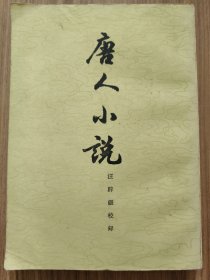 唐人小說
汪辟疆校錄